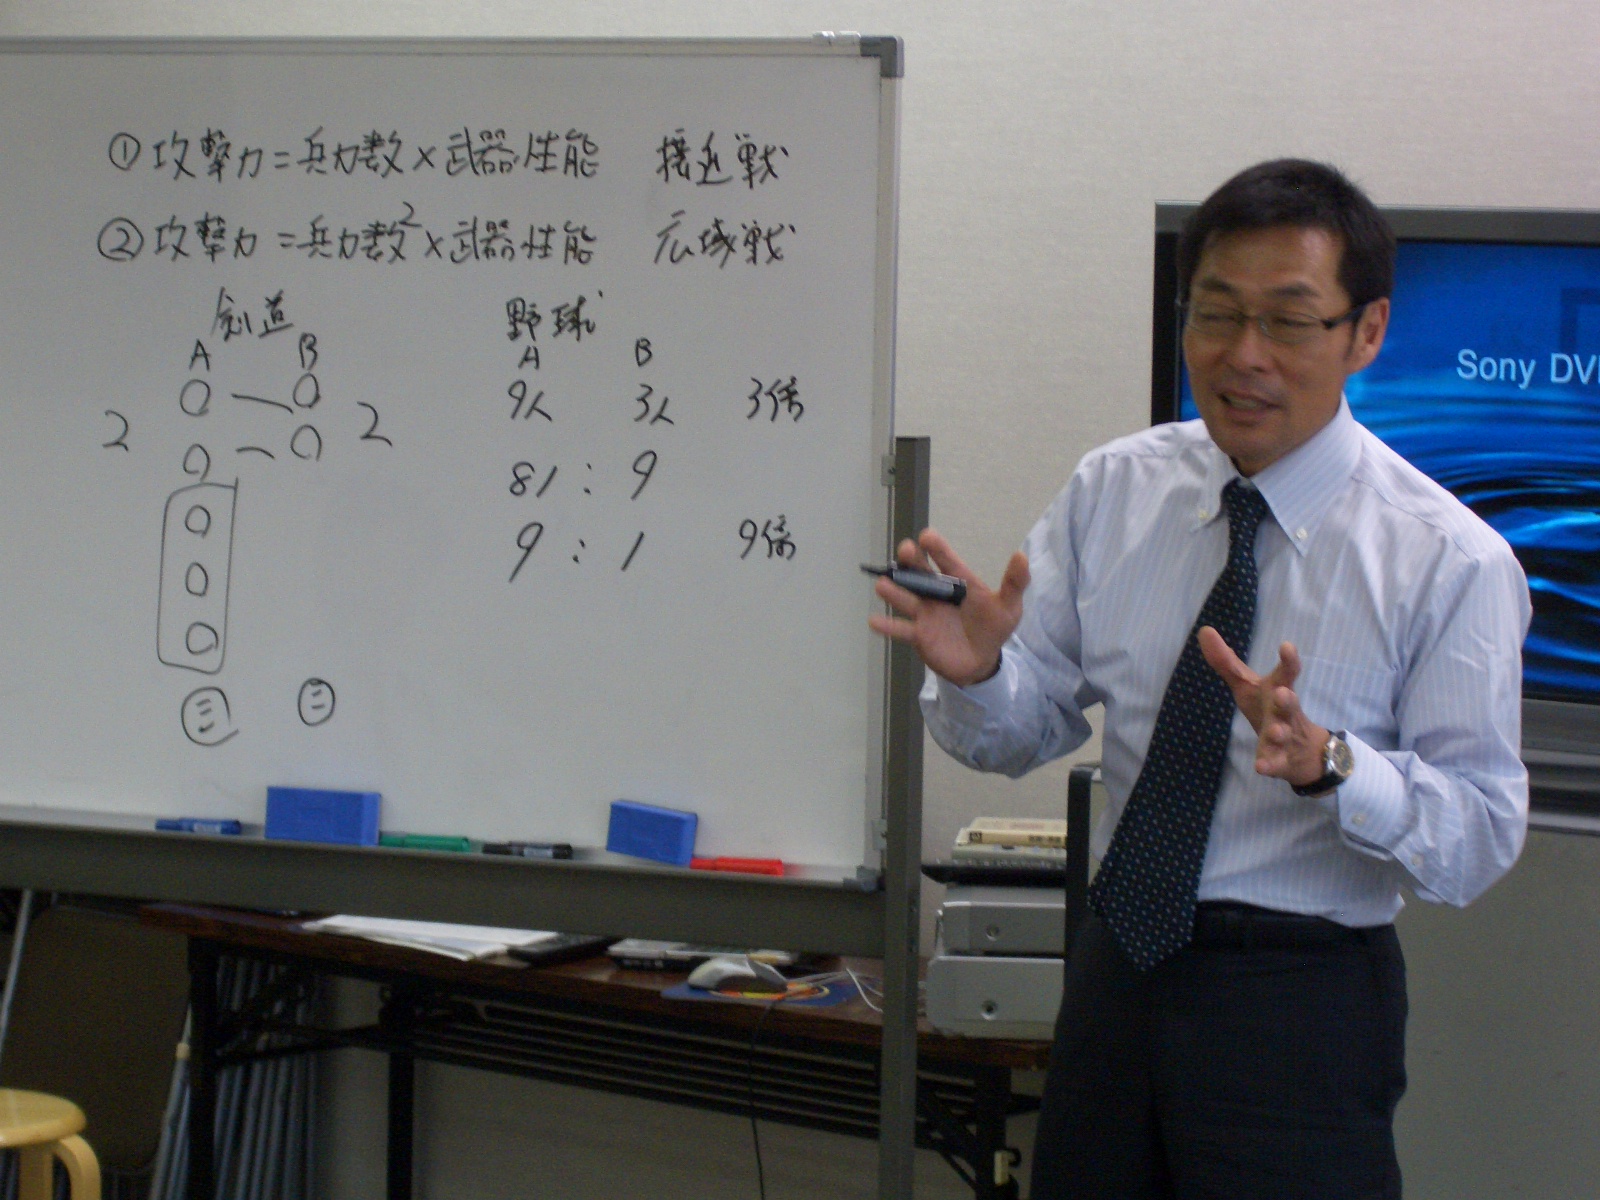 ①攻撃力=兵力数×武器性能 接近戦
②攻撃力=兵力数²×武器性能 広域戦
剣道
A B
2 2
三 二
野球
A B
9人 3人 3倍
81:9
9:1 9倍
Sony DV